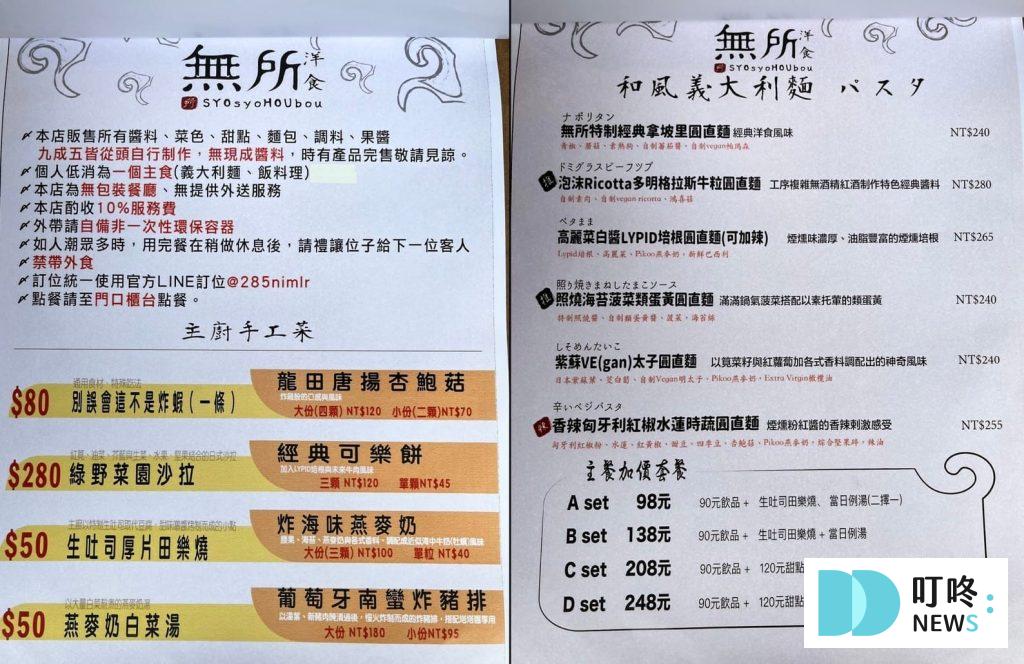 無所洋食
SYOsyoHOUbou
本店販售所有醬料、菜色、甜點、麵包、調料、果醬
九成五皆從頭自行制作，無現成醬料，時有產品完售敬請見諒。
個人低消為一個主食(義大利麵、飯料理)
本店為無包裝餐廳、無提供外送服務
本店酌收10%服務費
外帶請自備非一次性環保容器
如人潮眾多時，用完餐在稍做休息後，請禮讓位子給下一位客人
禁帶外食
訂位統一使用官方LINE訂位@285nimlr
點餐請至門口櫃台點餐。
主廚手工菜
通用食材、特殊吃法
$80 別誤會這不是炸蝦（一條）
$280 綠野菜園沙拉
$50 生吐司厚片田樂燒
以大量白菜熬煮的燕麥奶湯
$50 燕麥奶白菜湯
龍田唐揚杏鮑菇
炸雞般的口感與風味
大份(四顆) NT$120 小份(二顆)NT$70
經典可樂餅
加入LYPID培根與未來牛肉風味
三顆 NT$120 單顆NT$45
炸海味燕麥奶
大份(三顆) NT$100 單粒 NT$40
葡萄牙南蠻炸豬排
大份 NT$180 小份NT$95
無所洋食
SYOsyoHOUbou
和風義大利麵 パスタ
ナポリタン
無所特制經典拿坡里圓直麵 經典洋食風味 NT$240
青椒、蘑菇、素熱狗、自制蕃茄醬、自制vegan帕瑪森
ドミグラスビーフツブ
泡沫Ricotta多明格拉斯牛粒圓直麵 工序複雜無酒精紅酒制作特色經典醬料 NT$280
自制素肉、自制vegan ricotta、鴻喜菇
ベタまま
高麗菜白醬LYPID培根圓直麵(可加辣) 煙燻味濃厚、油脂豐富的煙燻培根 NT$265
Lypid培根、高麗菜、Pikoo燕麥奶、新鮮巴西利
照り焼きまねしたまこソース
照燒海苔菠菜類蛋黃圓直麵 滿滿鍋氣菠菜搭配以素托葷的類蛋黃 NT$240
特制照燒醬、自制類蛋黃醬、菠菜、海苔絲
しそめんたいこ
紫蘇VE(gan)太子圓直麵 以筧菜籽與紅蘿蔔加各式香料調配出的神奇風味 NT$240
日本紫蘇葉、茭白筍、自制Vegan明太子、Pikoo燕麥奶、Extra Virgin橄欖油
辛いベジパスタ
香辣匈牙利紅椒水蓮時蔬圓直麵 煙燻粉紅醬的香辣刺激感受 NT$255
匈牙利紅椒粉、水蓮、紅黃椒、甜豆、四季豆、杏鮑菇、Pikoo燕麥奶、綜合堅果碎、辣油
主餐加價套餐
A set 98元 90元飲品 + 生吐司田樂燒、當日例湯(二擇一)
B set 138元 90元飲品 + 生吐司田樂燒 + 當日例湯
C set 208元 90元飲品 + 120元甜點
D set 248元 90元飲品 + 120元甜點
叮咚
NEWS